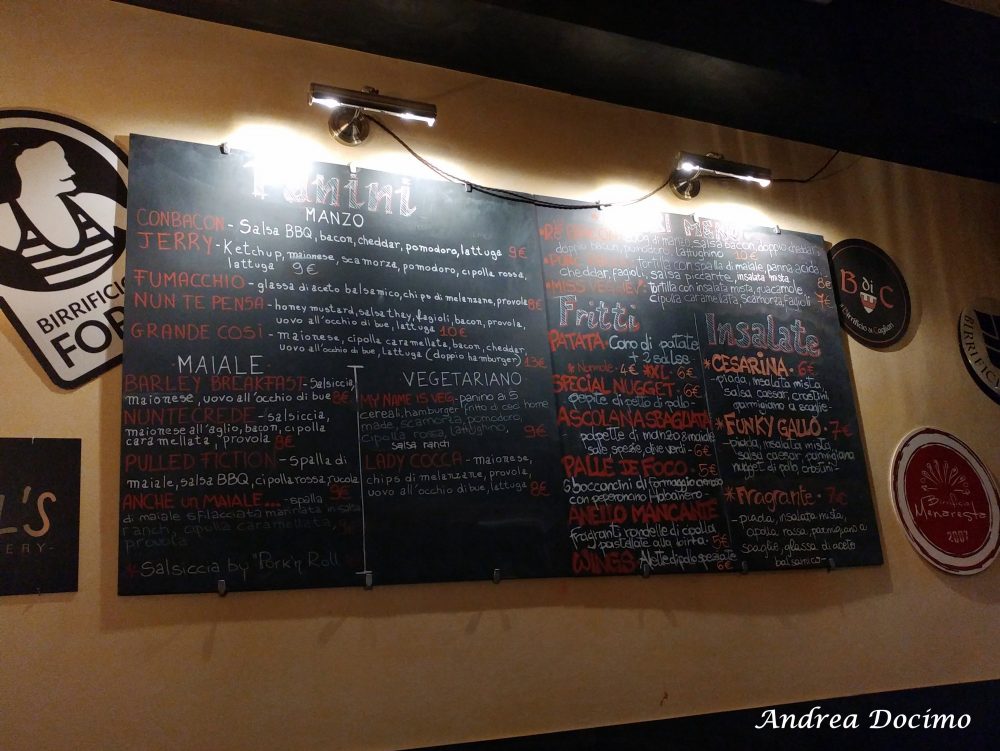 Panini
MANZO
CONBACON - Salsa BBQ, bacon, cheddar, pomodoro, lattuga 9€
JERRY - Ketchup, maionese, scamorza, pomodoro, cipolla rossa,
lattuga 9€
FUMACCHIO - glassa di aceto balsamico, chips di melanzane, provola 8€
NUN TE PENSA - honey mustard, salsa thay, fagioli, bacon, provola,
uovo all'occhio di bue, lattuga 10€
GRANDE COSÌ - maionese, cipolla caramellata, bacon, cheddar
uovo all'occhio di bue, lattuga (doppio hamburger) 13€
MAIALE
BARLEY BREAKFAST - Salsiccia,
maionese, uovo all'occhio di bue 8€
NUNTECREDE - salsiccia,
maionese all'aglio, bacon, cipolla
caramellata, provola 9€
PULLED FICTION - Spalla di
maiale, salsa BBQ, cipolla rossa, rucola
ANCHE un MAIALE... - spalla
di maiale sfilacciata marinata in salsa
ranch, cipolla caramellata, 9€
provola
*Salsiccia by "Pork'n Roll
VEGETARIANO
MY NAME IS VEG - panino ai 5
cereali, hamburger fritto di ceci home
made, scamorza, pomodoro,
cipolla rossa, lattughino, 9€
salsa ranch
LADY COCCA - maionese,
chips di melanzane, provola,
uovo all'occhio di bue, lattuga 8€
MENU
doppio bacon, pomodoro, lattughino 10€
tortilla con spalla di maiale, panna acida
cheddar, fagioli, salsa piccante, insalata mista 8€
*MISS VEGGIE! - tortilla con insalata mista, guacamole,
cipolla caramellata, scamorza, fagioli 7€
Fritti
PATATA - Cono di patate
+ 2 salse
*Normale - 4€ *XXL - 6€
SPECIAL NUGGET - 6€
pepite di petto di pollo -
ASCOLANA SBAGLIATA
polpette di manzo & maiale
sale spezie olive verdi - 6€
PALLE DE FOCO - 5€
6 bocconcini di formaggio cremoso
con peperoncino Habanero -
ANELLO MANCANTE
fragranti rondelle di cipolla
pastellate alla birra - 5€
WINGS - Alette di pollo speziate
6€
Insalate
*CESARINA - 6€
- piada, insalata mista,
salsa caesar, crostini,
parmigiano a scaglie -
*FUNKY GALLO - 7€
- piada, insalata mista,
salsa caesar parmigiano
nugget di pollo crostini -
*Fragrante - 7€
- piada, insalata mista,
cipolla rossa, parmigiano a
scaglie, glassa di aceto
balsamico -
BIRRIFICIO
L'S
B di C
Birrificio di Cagliari
BIRRIFIC
Birrificio
Menaresta
2007
Andrea Docimo